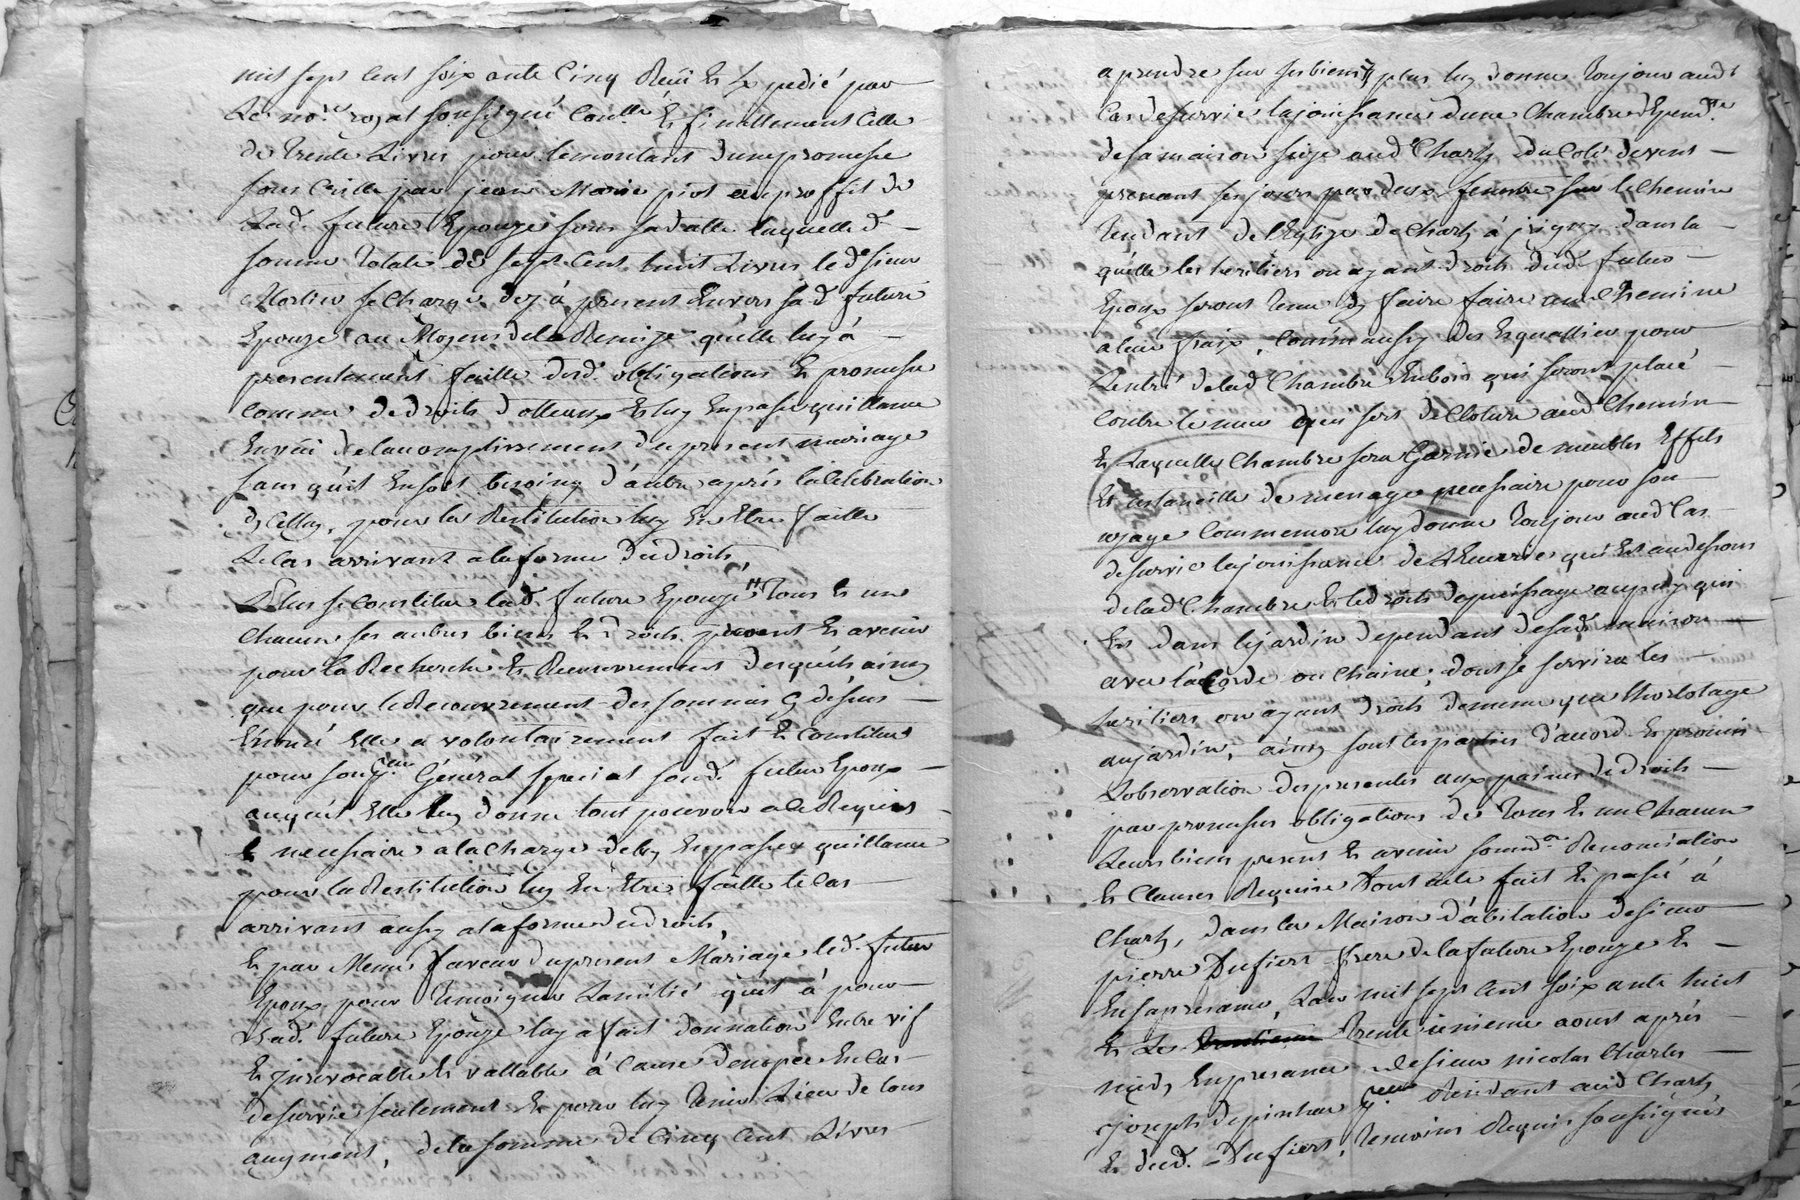 mil sept cent soixante cinq Reçu Et Expedié par
Le no.re royal soussigné Con.lle Et finallement Celle
de trente Livres pour lemontant dunepromesse
sous Caille par jean Marie piot auproffit de
Lad. future Epouze sous sadatte laquelle d
somme totale de sept Cent huit Livres le d.sieur
se Charge dezà present Envers sad. future
Epouze au Moyens dela Remize quelle luy à
presentement faitte desd. obligations Et promesse
comme de droits Et luy Enpasse quittance
delacomplissement dupresent mariage
sans quil Ensoit besoing d'autre après laCelebration
dyCelluy, pour la Restitution luy En Etre faitte
Le Cas arrivant alaforme dudroits,
Plus se Constitue lad. future Epouze tous Et un
Chacun ses autres biens Et droits present Et avenir
pour la Recherche Et Recouvrement desquels ainsy
que pour le Recouvrement des sommes Cy dessus
Enoncé Elle a volontairement fait Et Constitué
pour son p.cur Général special sond. futur Epoux
auquel Elle luy donne tout pouvoir a ce Requis
Et necessaire ala Charge deluy Enpasser quittance
pour la Restitution luy En Etre faitte le Cas
arrivant aussy alaformedudroits,
Et par Meme faveur dupresent Mariage led. futur
Epoux pour temoigner Lamitié quil à pour
Lad. future Epouze luy a fait donnation Entre vif
Et jrrevocable Et vallable à Cause denopce En Cas
desurvie seulement Et pour luy tenir Lieu de tous
augment, dela somme de Cinq Cent Livres
aprendre sur sesbiens plus luy donne toujour aud.
Cas desurvie lajouissance dune Chambre depend.te
desamaison size aud. Charly ducoté devent
prenant sesjours par deux fenetre sur le Chemin
tendant de lEglize de Charly à jrigny dans la
quelle les heritiers ou ayant droits dud. futur
Epoux seront tenu dy faire faire une Cheminé
aleur fraix, Comm'aussy des Esquallier pour
Lentré delad. Chambre Enbois qui seront placé
Contre le mur qui sert de Cloture aud. Chemin
Et Laquelle Chambre sera Garnie de meubles Effets
Et ustancille de menage necessaire pour son
uzage Comme luy donne toujour aud. Cas
desurvie lajouissance de qui Est audessous
delad. Chambre Et ledroits depuissage aupuy qui
Est dans lejardin dependant desad. maison
avec la Corde ou Chaine, dont se servira les
heritiers ou ayant droits dememe que
aujardin, ainsy sont les parties d'acord Et promis
Lobservation despresentes aux peines de droits
par promesses obligations de tous Et un Chacun
Leurs biens present Et avenir Renonciation
Et Clauses Requise Dont acte fait Et passé à
Charly, dans la Maison d'abitation desieur
pierre Dufiers frere delafuture Epouze Et
Ensapresance, Lan mil sept Cent soixante huit
Et Le trente unieme aoust après
midy Enpresance desieur nicolas Charles
joseph depinhac residant aud. Charly
Et dud. Dufiers, temoins Requis soussignés